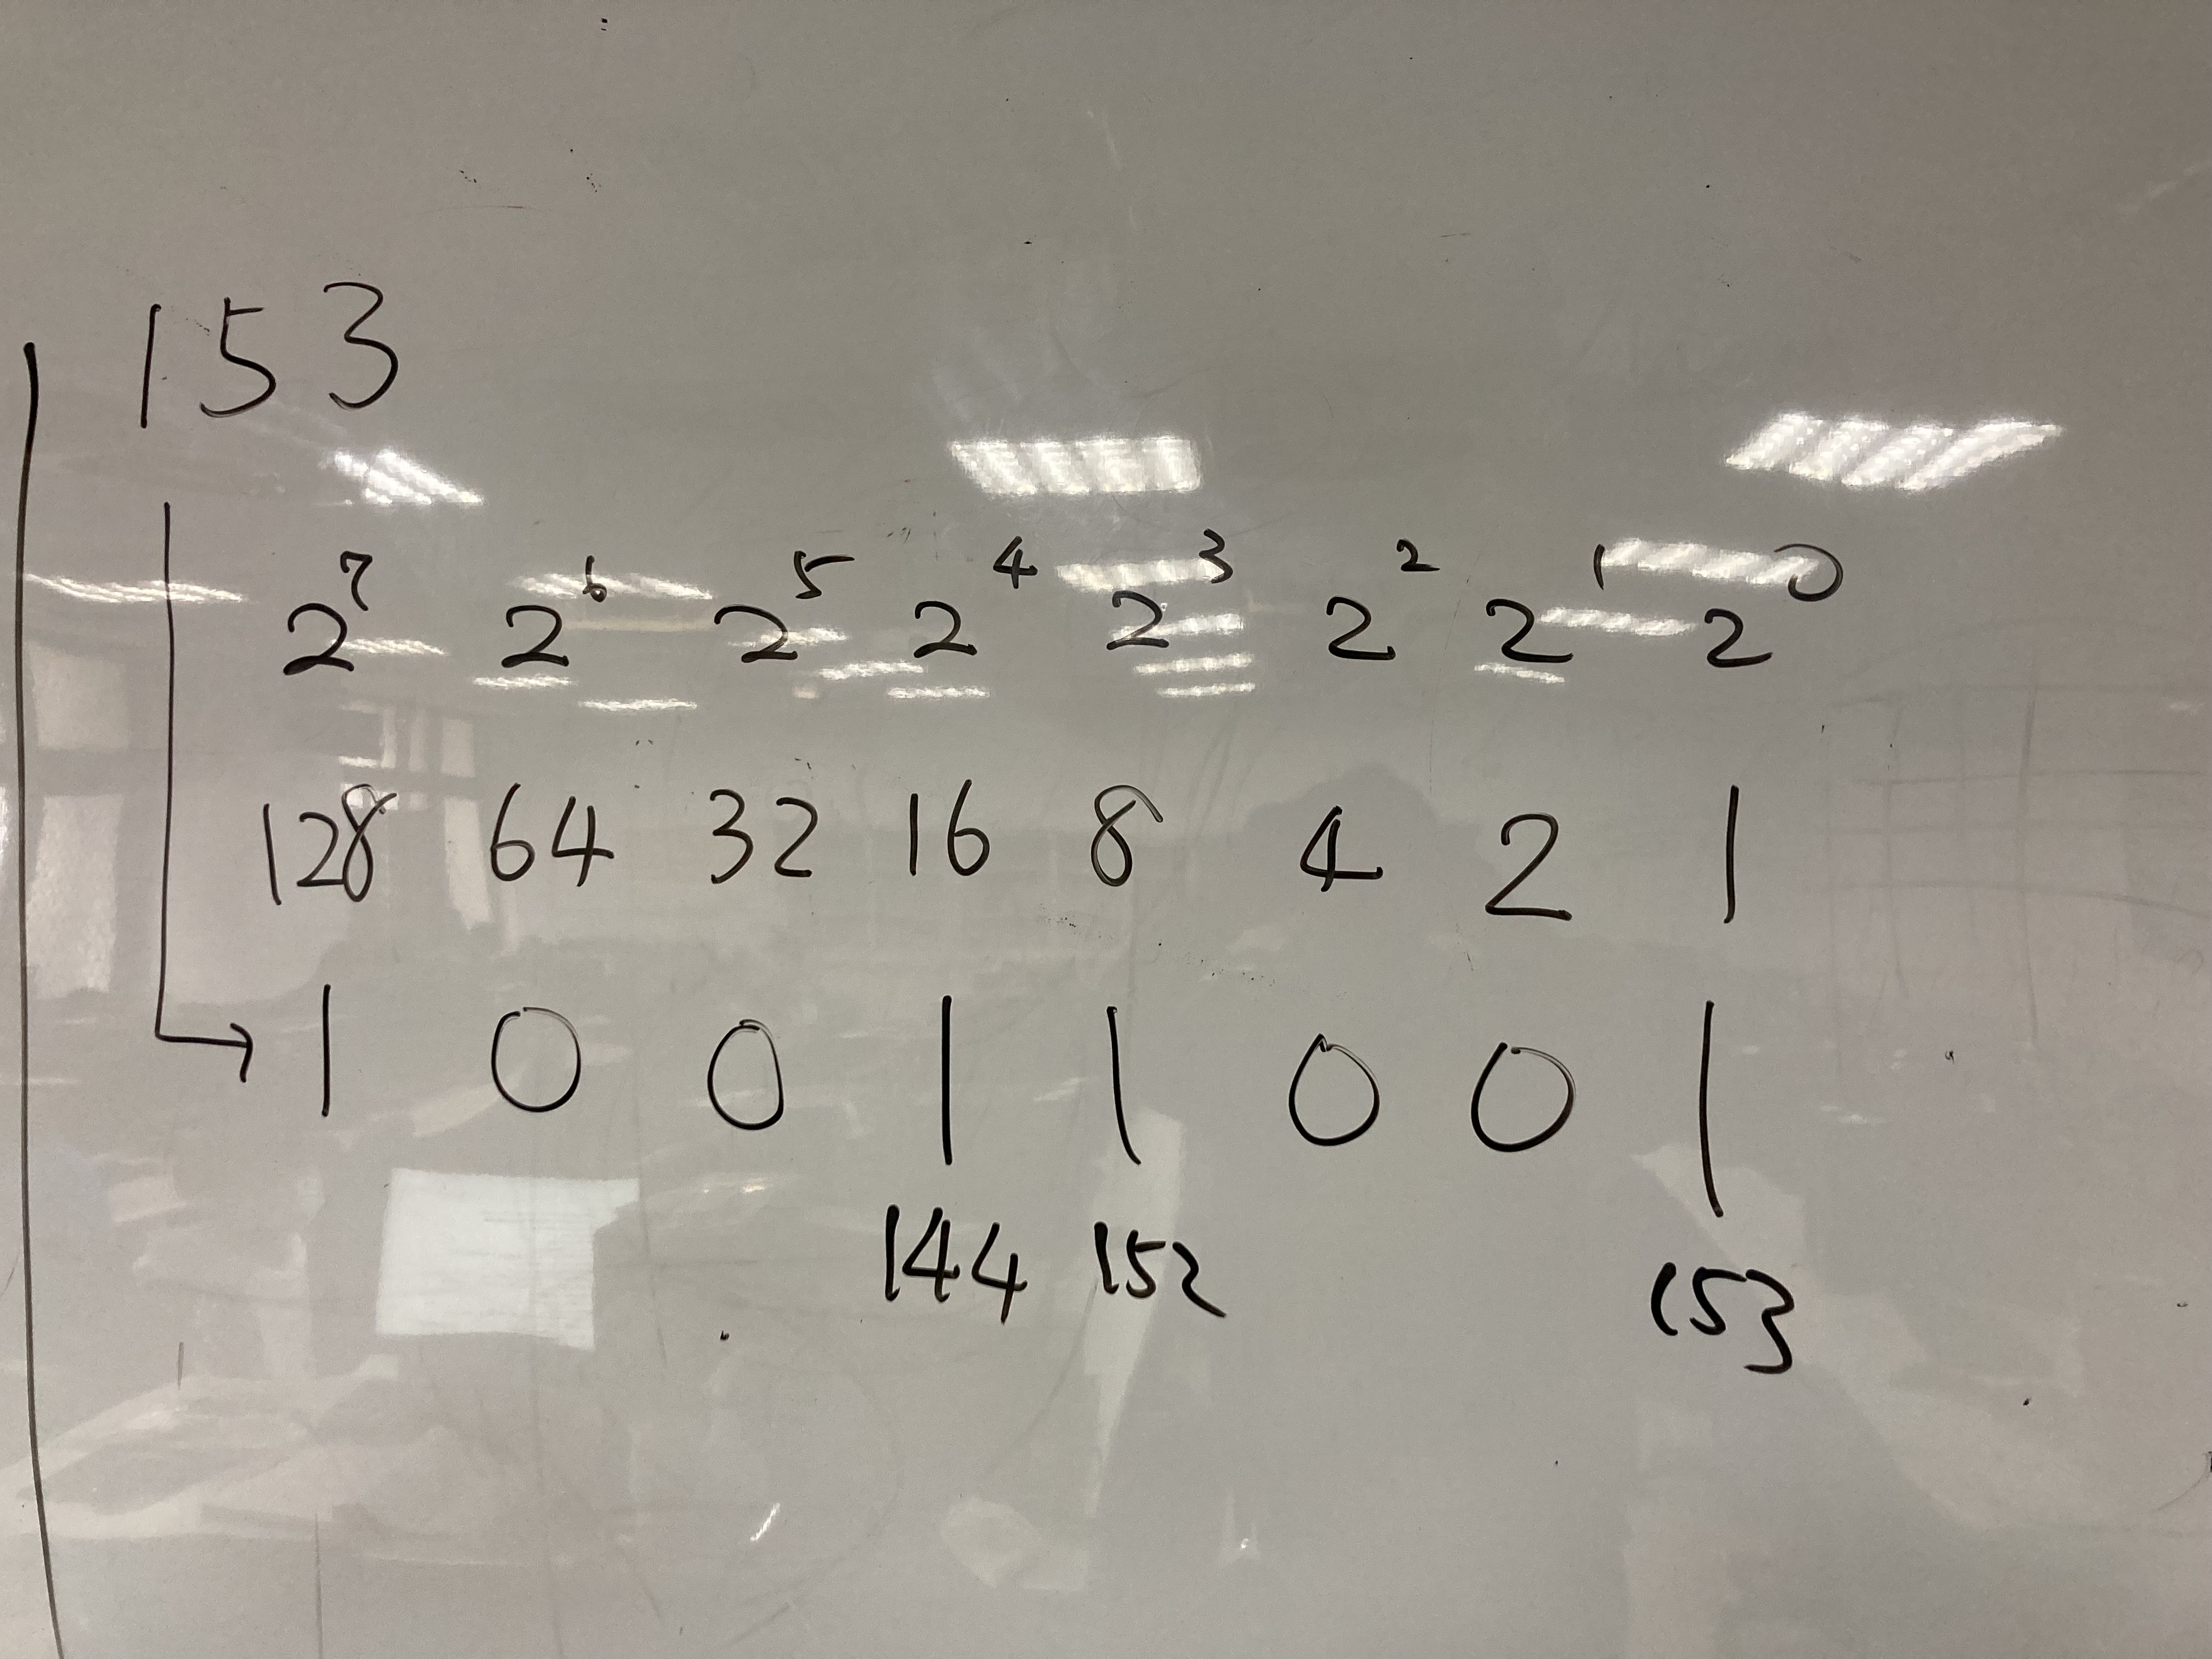 153
2⁷ 2⁶ 2⁵ 2⁴ 2³ 2² 2¹ 2⁰
128 64 32 16 8 4 2 1
→ 1 0 0 1 1 0 0 1
144 152 153